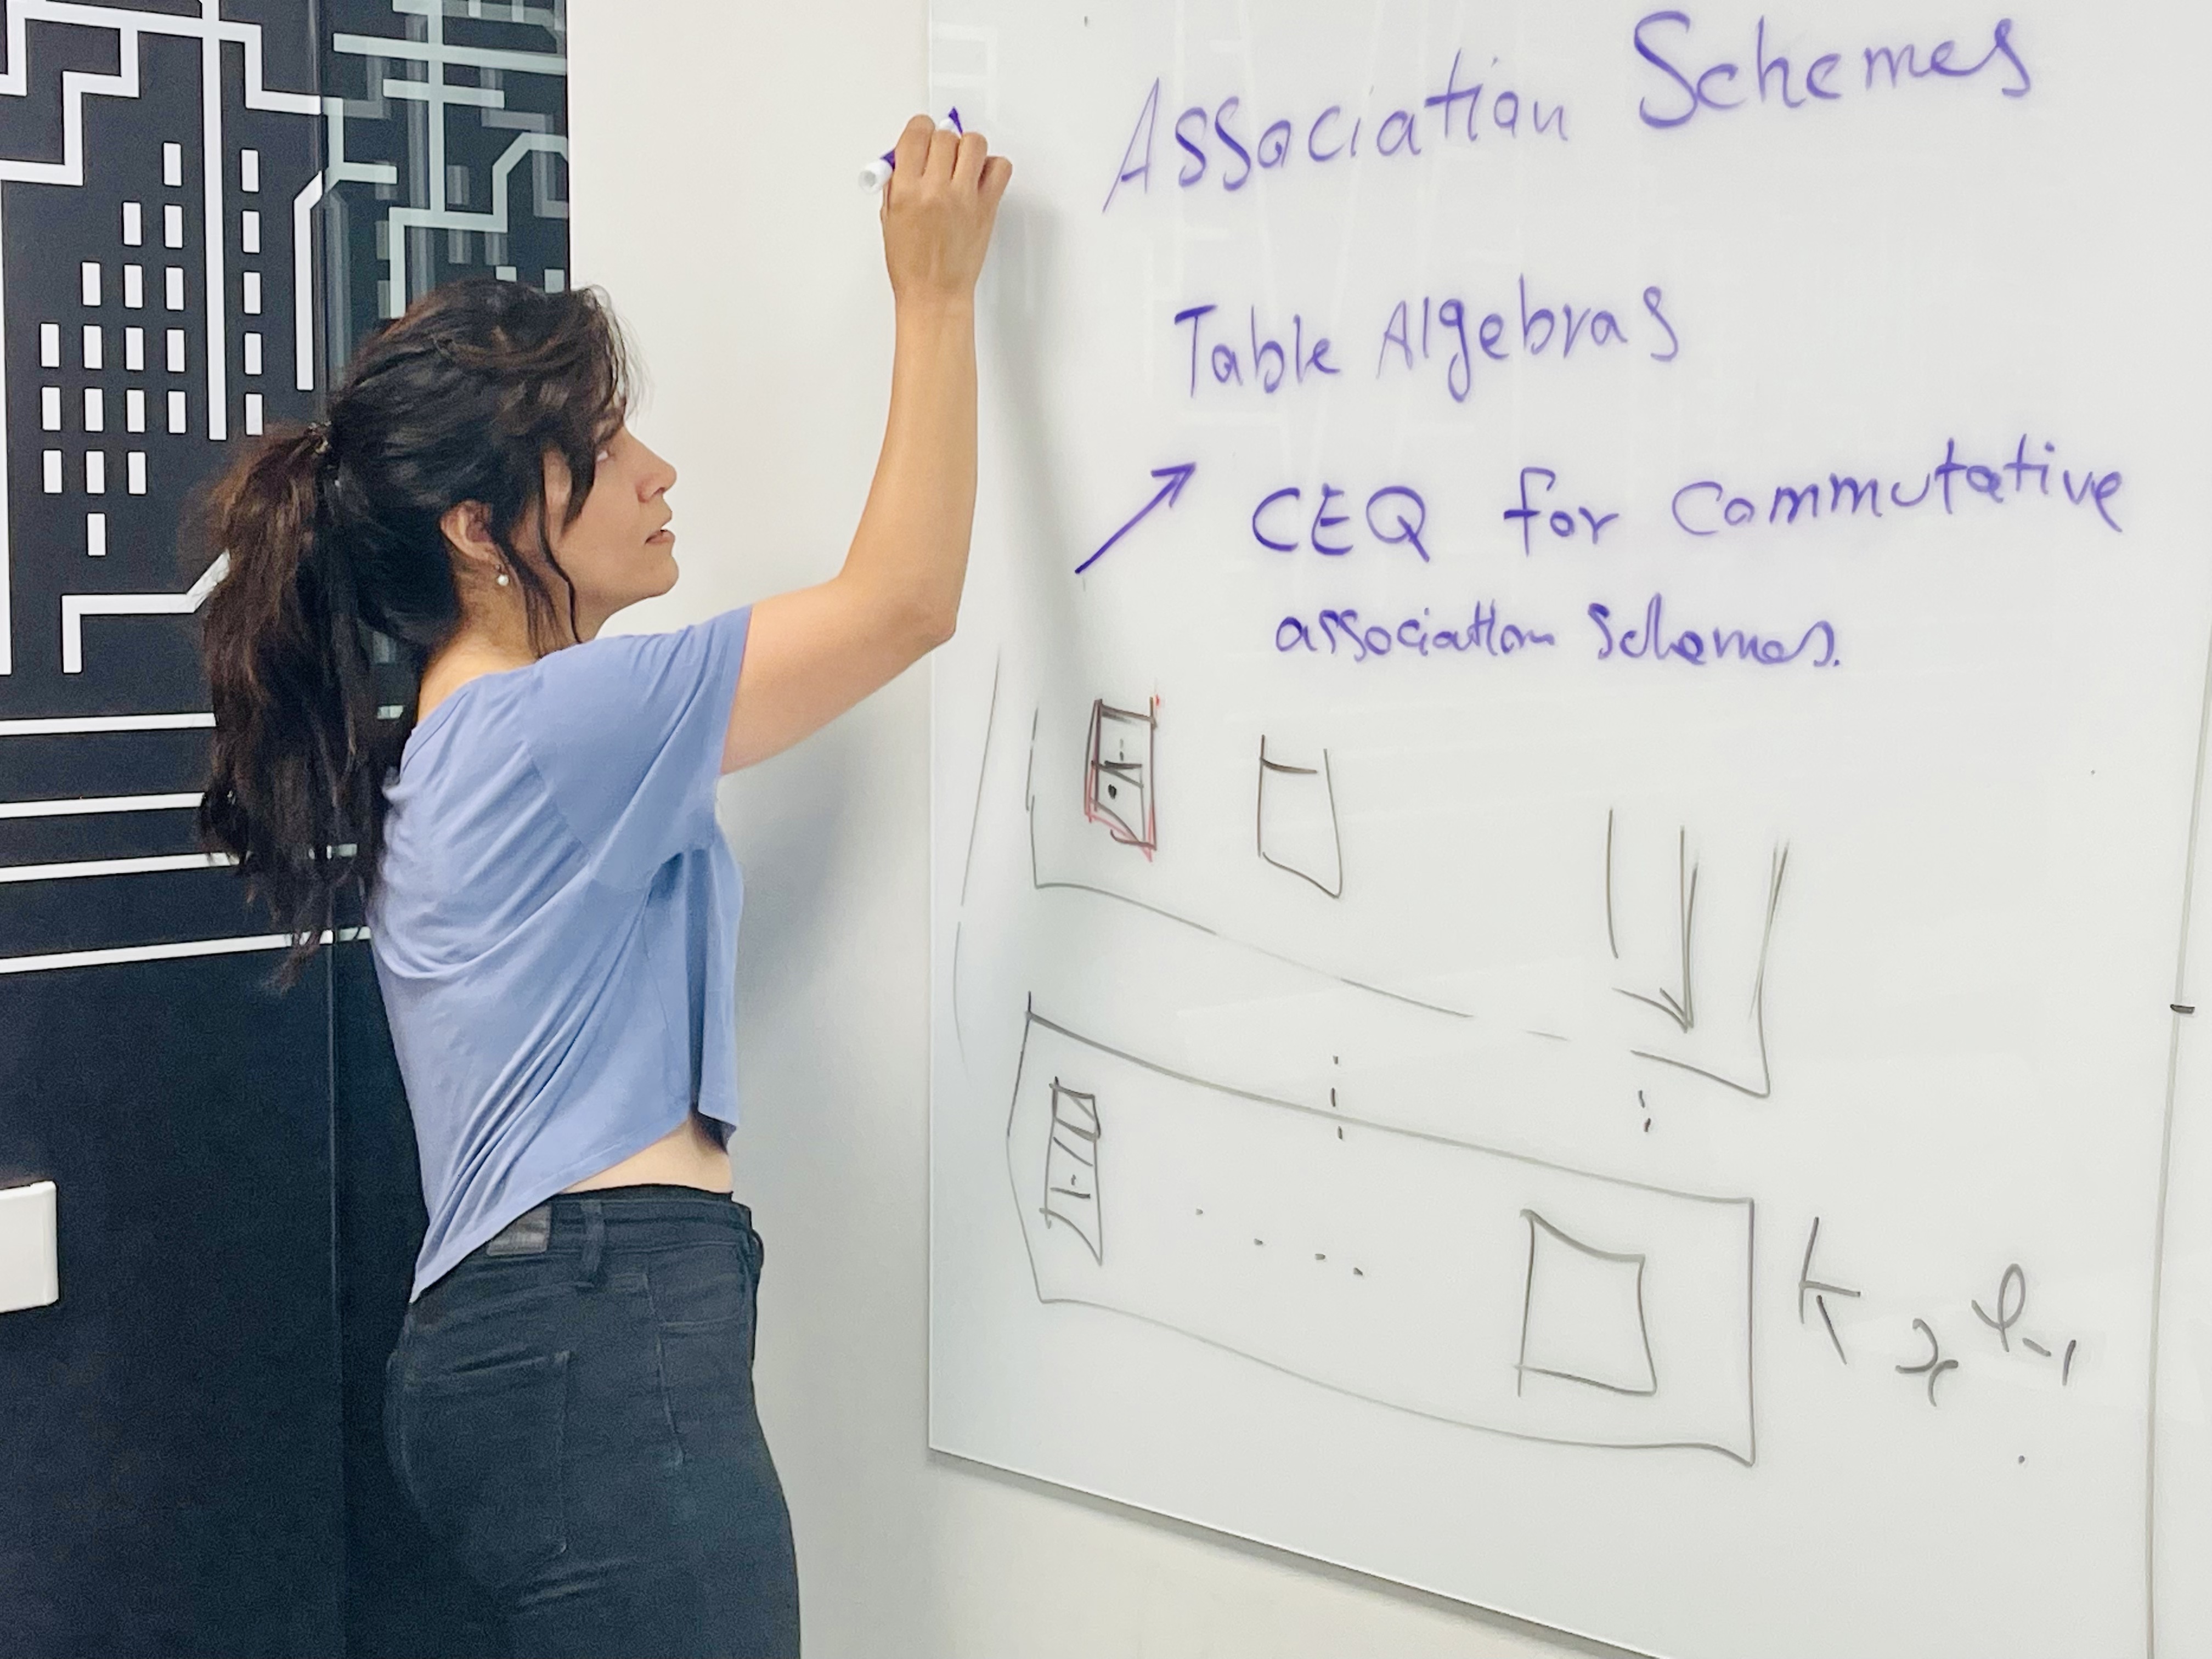 Association Schemes
Table Algebras
CEQ for Commutative
association Schemes.